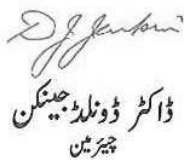 D J Jenkin
ڈاکٹر ڈونلڈ جینکن
چیئرمین